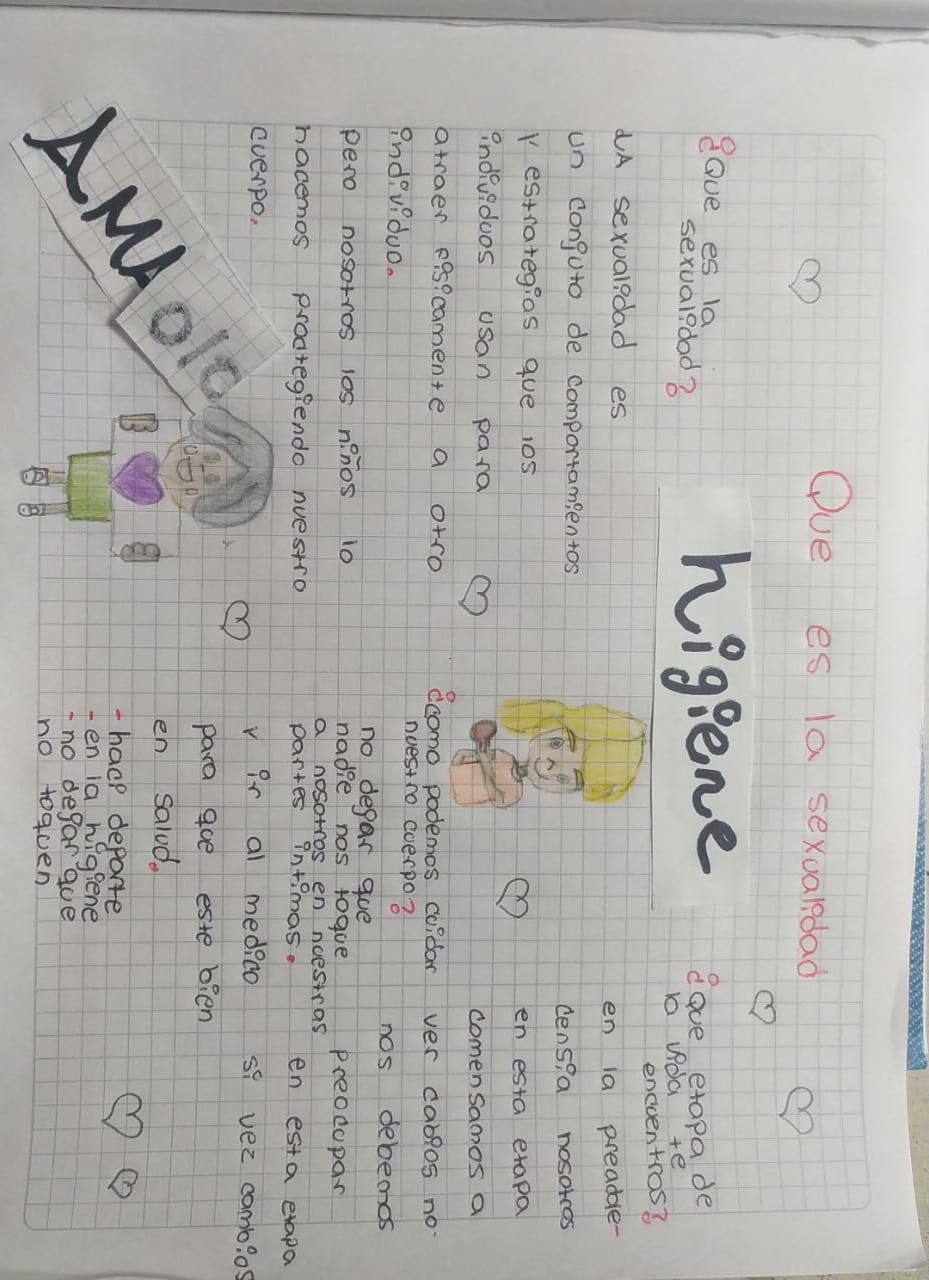 Que es la sexualidad
higiene
¿Que es la
sexualidad?
LA sexualidad es
un conjuto de comportamientos
y estrategias que los
individuos usan para
atraer fisicamente a otro
individuo.
pero nosotros los niños lo
hacemos proategiendo nuestro
cuerpo.
AMA
olo
¿como podemos cuidar
nuestro cuerpo?
no degar que
nadie nos toque
a nosotros en nuestras
partes intimas.
y ir al medico
para que este bien
en salud.
- hacer deporte
- en la higiene
- no degar que
no toquen
¿que etapa de
la vida te
encuentros?
en la preadole-
censia nosotros
en esta etapa
comensamos a
ver cabios no
nos debemos
preocupar
en esta etapa
si vez cambios